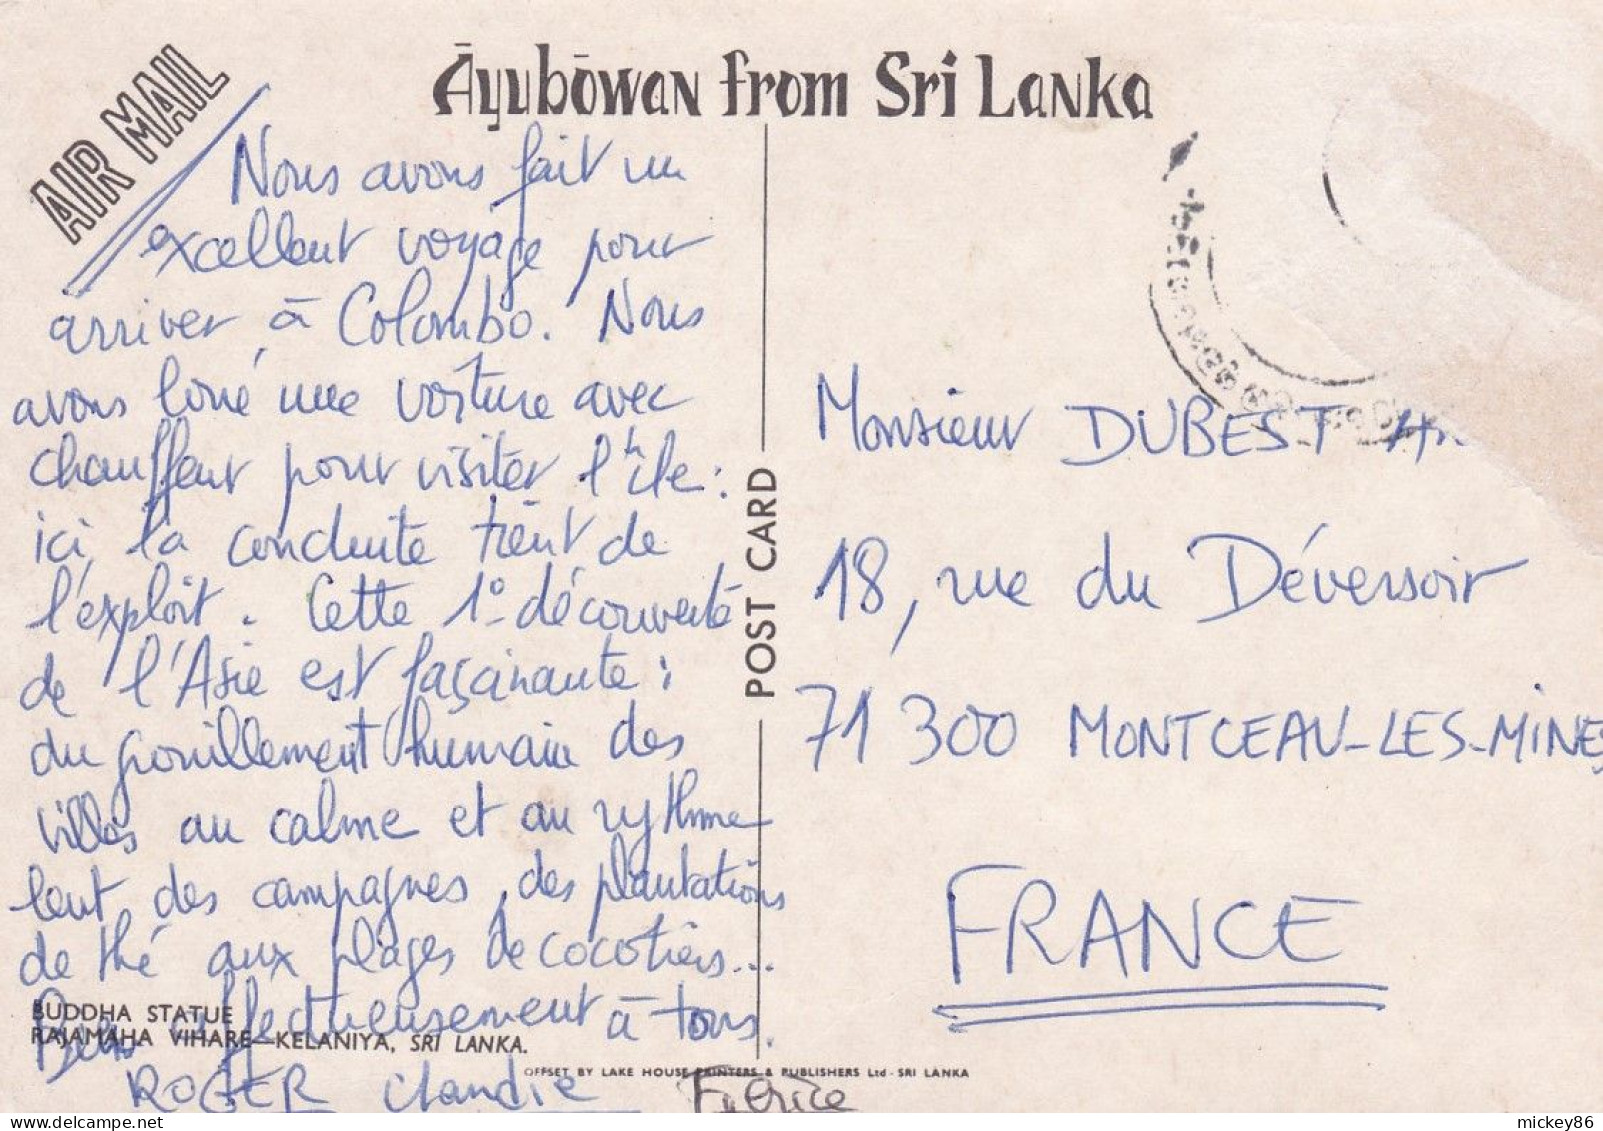 AIR MAIL
Āyubōwan from Sri Lanka
Nous avons fait un
excellent voyage pour
arriver à Colombo. Nous
avons loué une voiture avec
chauffeur pour visiter l'île :
ici la conduite tient de
l'exploit. Cette 1° découverte
de l'Asie est façinante :
du grouillement humain des
villes au calme et au rythme
lent des campagnes, des plantations
de thé aux plages de cocotiers...
Bien affectueusement à tous.
ROGER Claudie Fabrice
BUDDHA STATUE
RAJAMAHA VIHARE—KELANIYA, SRI LANKA.
OFFSET BY LAKE HOUSE PRINTERS & PUBLISHERS Ltd - SRI LANKA
POST CARD
Monsieur DUBEST
18, rue du Déversoir
71 300 MONTCEAU-LES-MINES
FRANCE
mickey86